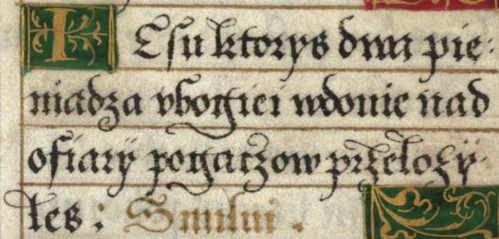 IEsu ktorys dwa pie-
niadza vbogiei wdowie nad
ofiary bogaczow przełozy-
łes: Smilui.